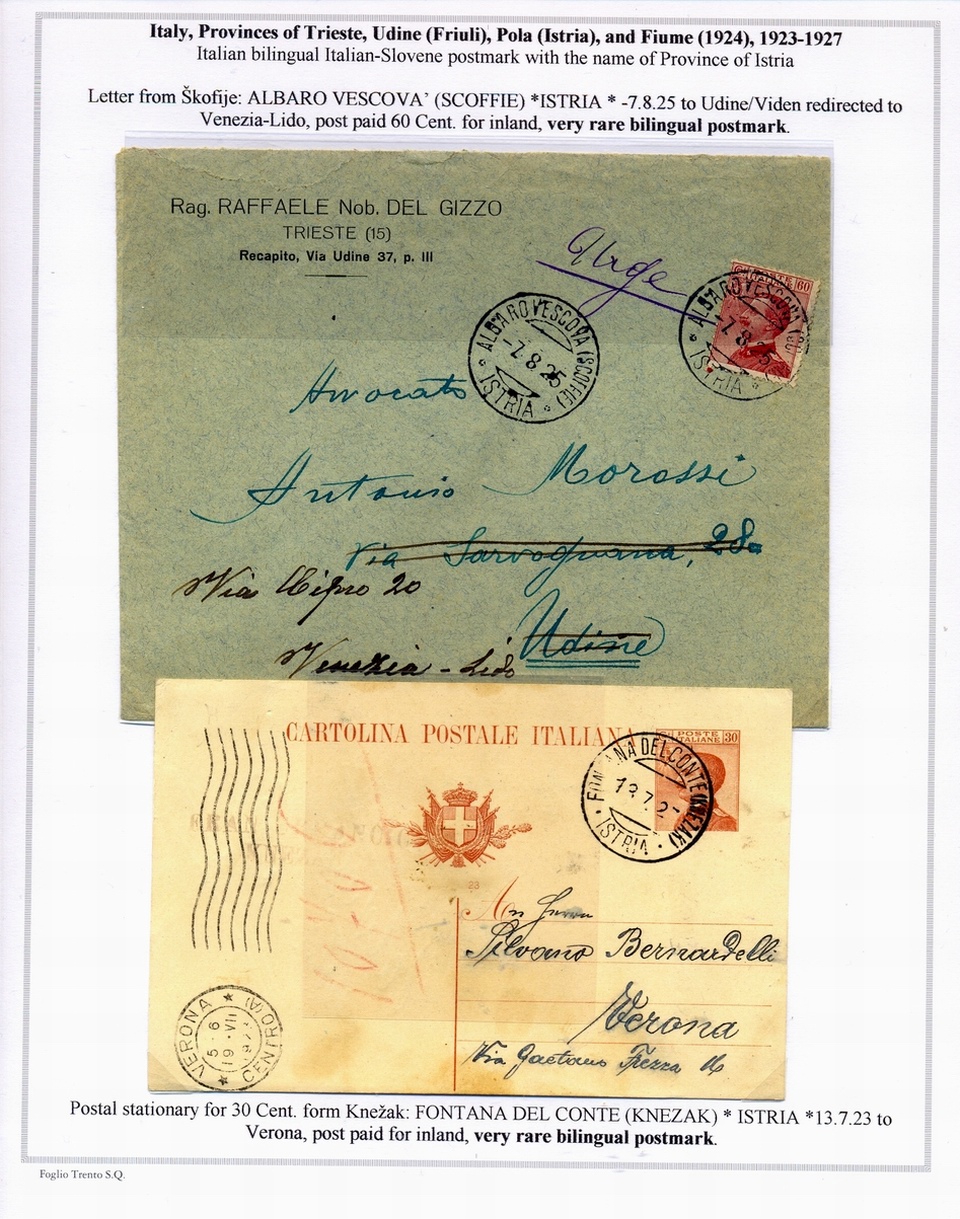 Italy, Provinces of Trieste, Udine (Friuli), Pola (Istria), and Fiume (1924), 1923-1927
Italian bilingual Italian-Slovene postmark with the name of Province of Istria
Letter from Škofije: ALBARO VESCOVA' (SCOFFIE) *ISTRIA * -7.8.25 to Udine/Viden redirected to
Venezia-Lido, post paid 60 Cent. for inland, very rare bilingual postmark.
Rag. RAFFAELE Nob. DEL GIZZO
TRIESTE (15)
Recapito, Via Udine 37, p. III
Urge
60
ALBARO VESCOVA (SCOFFIE)
-7.8.25
ISTRIA
ALBARO VESCOVA
7.8.25
ISTRIA
Avvocato
Antonio Morossi
Via Savorgnana, 28a
Via Cipro 20
Udine
Venezia - Lido
CARTOLINA POSTALE ITALIANA
POSTE ITALIANE 30
FONTANA DEL CONTE (KNEZAK)
ISTRIA
23
An Herrn
Silvano Bernardelli
Verona
Via Gaetano Trezza
VERONA CENTRO (A)
5-6
19 VII
Postal stationary for 30 Cent. form Knežak: FONTANA DEL CONTE (KNEZAK) * ISTRIA *13.7.23 to
Verona, post paid for inland, very rare bilingual postmark.
Foglio Trento S.Q.